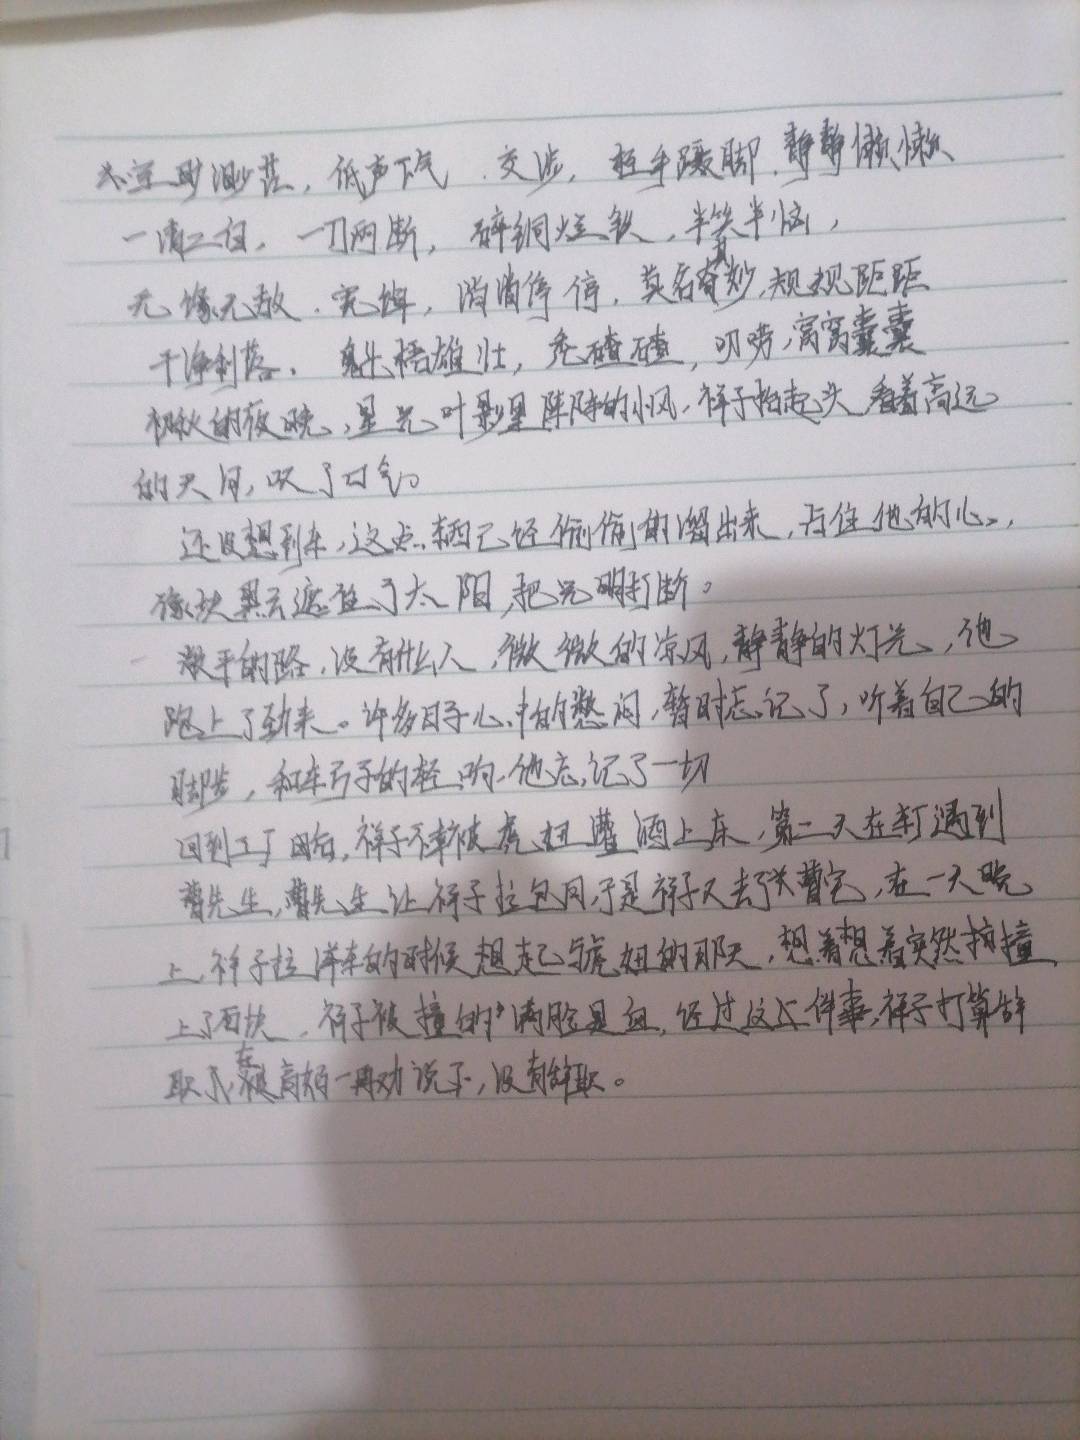 渺茫，低声下气、交涉，轻手蹑脚、静静懒懒
一清二白，一刀两断，碎铜烂铁，半笑半恼，
无缘无故、完婢，消消停停，莫名其妙，规规距距
干净利落、魁梧雄壮，秃碴碴，叨唠，窝窝囊囊
初秋的夜晚，星光叶影里阵阵的小风，祥子抬起头，看着高远
的天河，叹了口气。
还没想到车，这点东西已经偷偷的溜出来，占住他的心，
像块黑云遮住了太阳，把光明打断。
敞平的路，没有什么人，微微的凉风，静静的灯光，他
跑上了劲来。许多日子心中的憋闷，暂时忘记了，听着自己的
脚步，和车弓子的轻响，他忘记了一切
回到工厂因后，祥子不幸被虎妞灌酒上床，第二天在 遇到
曹先生，曹先生让祥子拉包月，于是祥子又去了 曹宅，在一天晚
上，祥子拉洋车的时候想起与虎妞的那天，想着想着突然 撞
上了石块，祥子被撞的满脸是血，经过这 件事，祥子打算辞
职了，在 高妈一再劝说下，没有辞职。